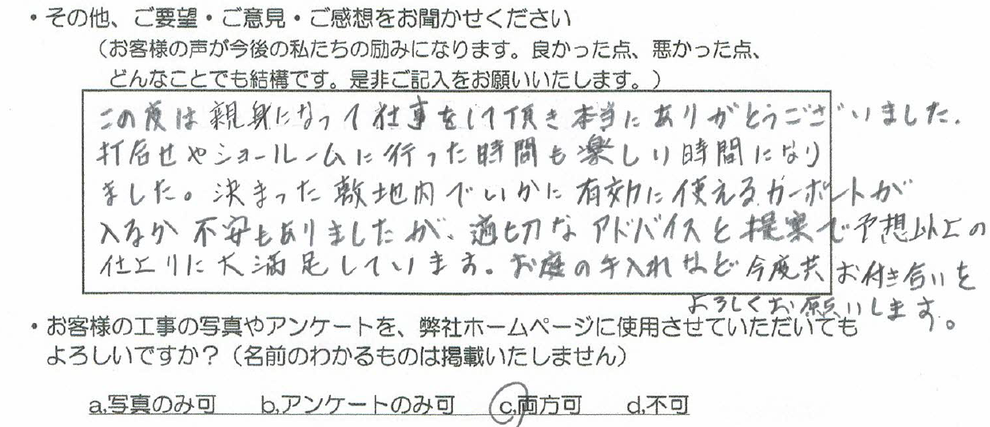 ・その他、ご要望・ご意見・ご感想をお聞かせください
（お客様の声が今後の私たちの励みになります。良かった点、悪かった点、
どんなことでも結構です。是非ご記入をお願いいたします。）
この度は親身になって仕事をして頂き本当にありがとうございました.
打合せやショールームに行った時間も楽しい時間になり
ました。決まった敷地内でいかに有効に使えるカーポートが
入るか不安もありましたが、適切なアドバイスと提案で予想以上の
仕上りに大満足しています。お庭の手入れなど今度共お付き合いを
よろしくお願いします。
・お客様の工事の写真やアンケートを、弊社ホームページに使用させていただいても
よろしいですか？（名前のわかるものは掲載いたしません）
a,写真のみ可 b,アンケートのみ可 c,両方可 d,不可